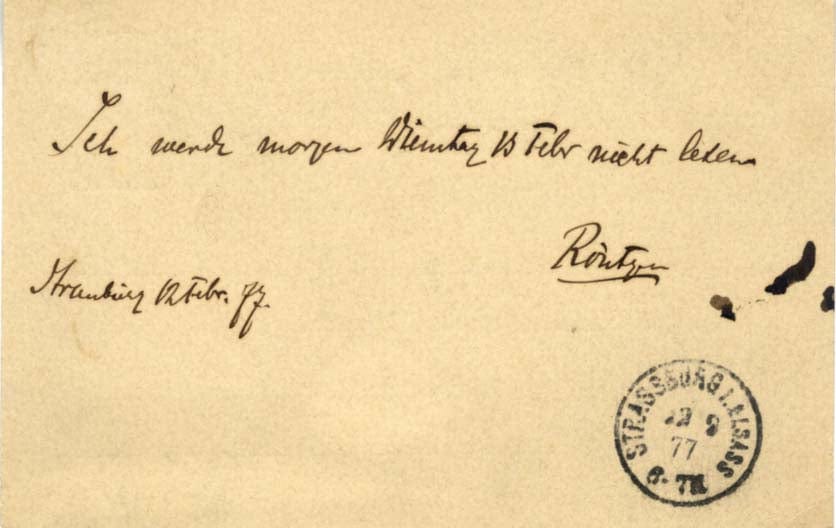 Ich werde morgen Dienstag 13 Febr nicht lesen
Röntgen
Strassburg 12 Febr. 77.
STRASSBURG I. ELSASS
12 2
77
6-7N